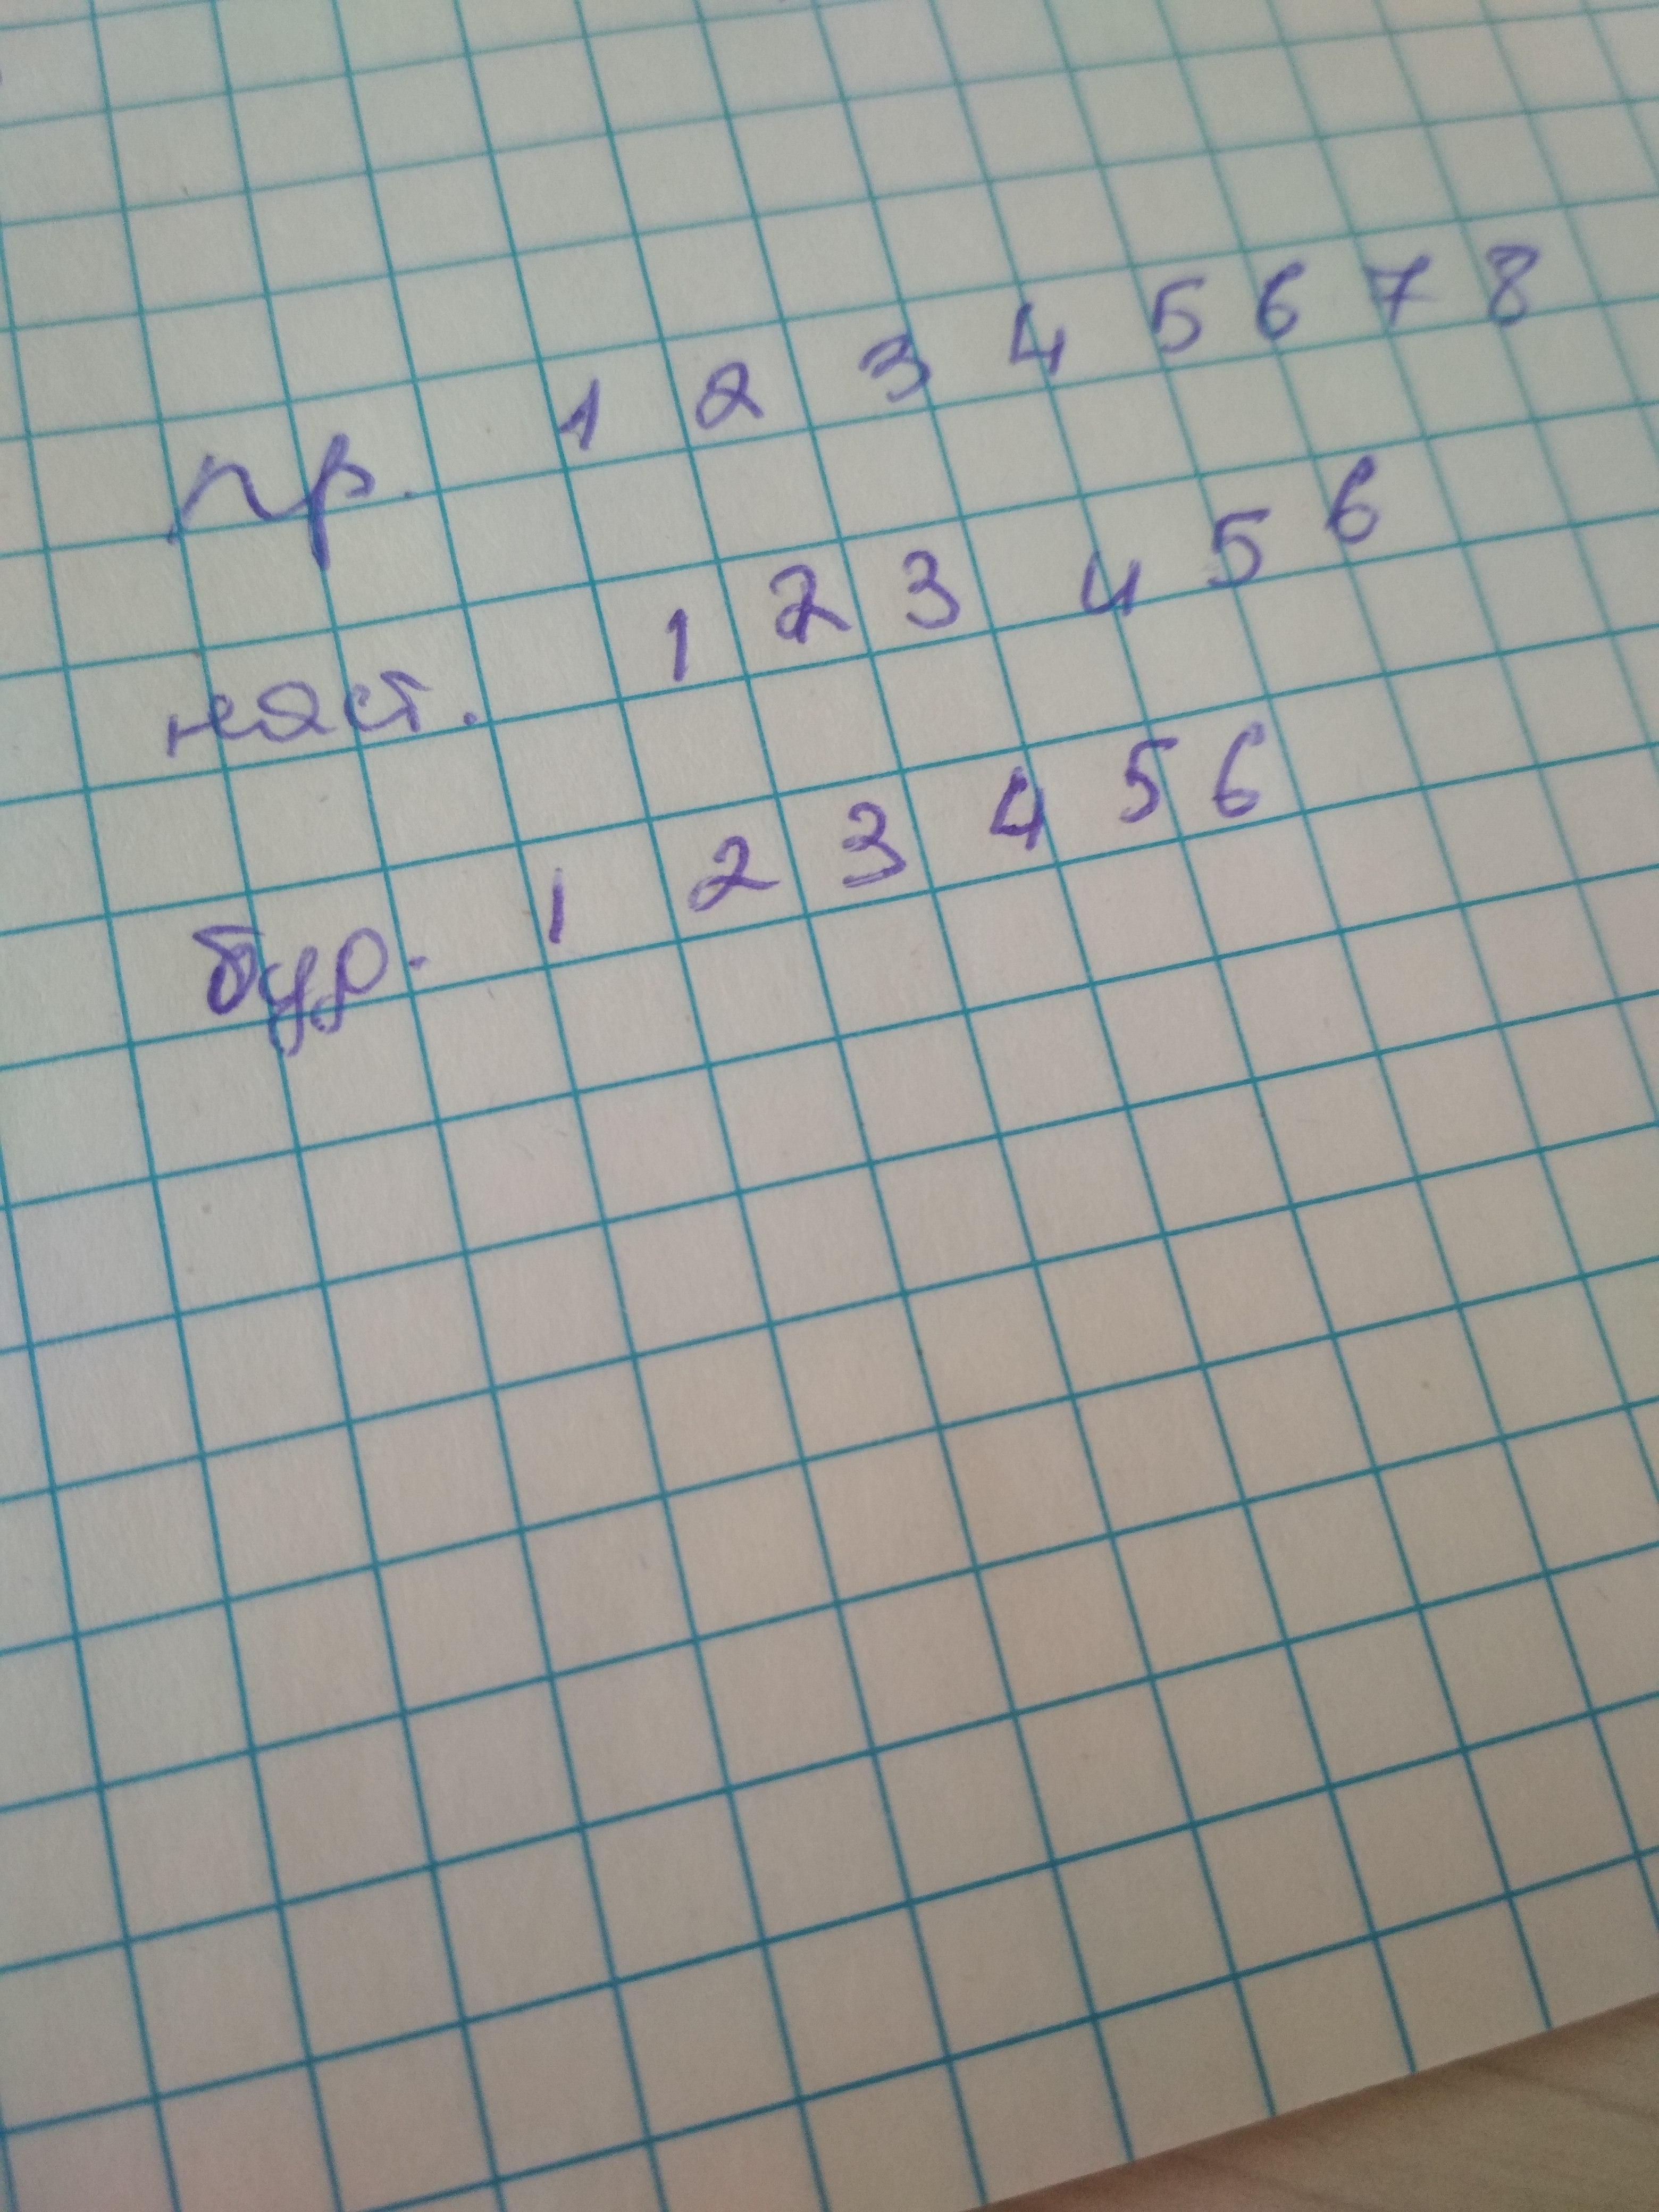 пр. 1 2 3 4 5 6 7 8
наст. 1 2 3 4 5 6
буд. 1 2 3 4 5 6